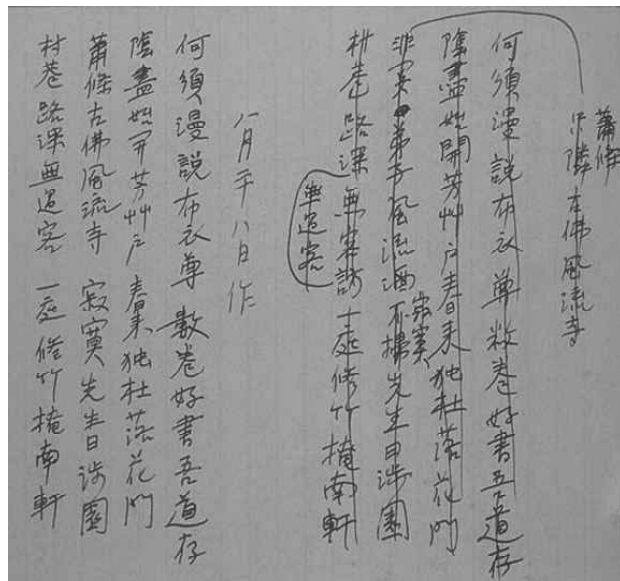 蕭條
隣古佛風流寺
何須漫說布衣尊数卷好書吾道存
陰盡始開芳艸戶春来独杜落花門
弟子風流酒
寂寞
先生日涉園
村巷路深無客訪一庭修竹掩南軒
無過客
八月二十八日作
何須漫說布衣尊 數卷好書吾道存
陰盡始開芳艸戶 春来独杜落花門
蕭條古佛風流寺 寂寞先生日涉園
村巷路深無過客 一庭修竹掩南軒